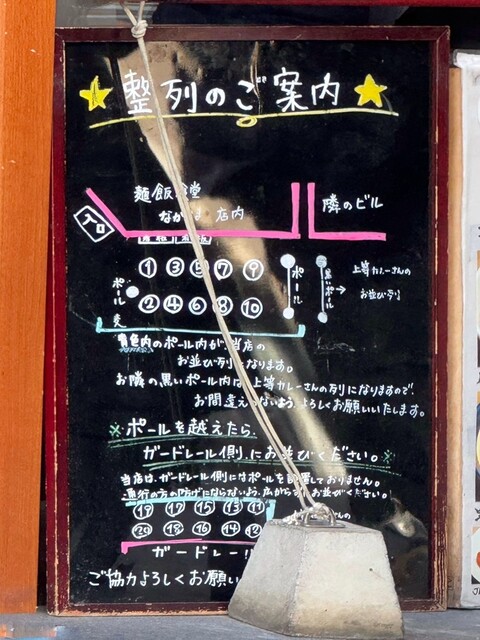 整列のご案内
麺飯食堂
隣のビル
店内
入口
①③⑤⑦⑨
ポール
ポール
黒いポール
→
上等カレーさんの
お並び列
②④⑥⑧⑩
色内のポール内が当店の
お並び列になります。
お隣の黒いポール内は上等カレーさんの列になりますので、
お間違えのないよう、よろしくお願いいたします。
※ポールを越えたら、
ガードレール側にお並びください。※
当店は、ガードレール側にはポールを設置しておりません。
通行の方の妨げにならないよう、広がらずお並びください。
⑲⑰⑮⑬⑪
⑳⑱⑯⑭
ガードレー
ご協力よろしくお願い